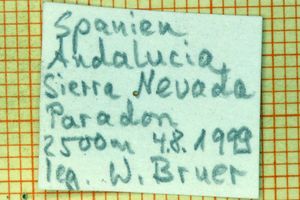 Spanien
Andalucia,
Sierra Nevada
Paradon
2500m 4.8.1999
leg. W. Bruer